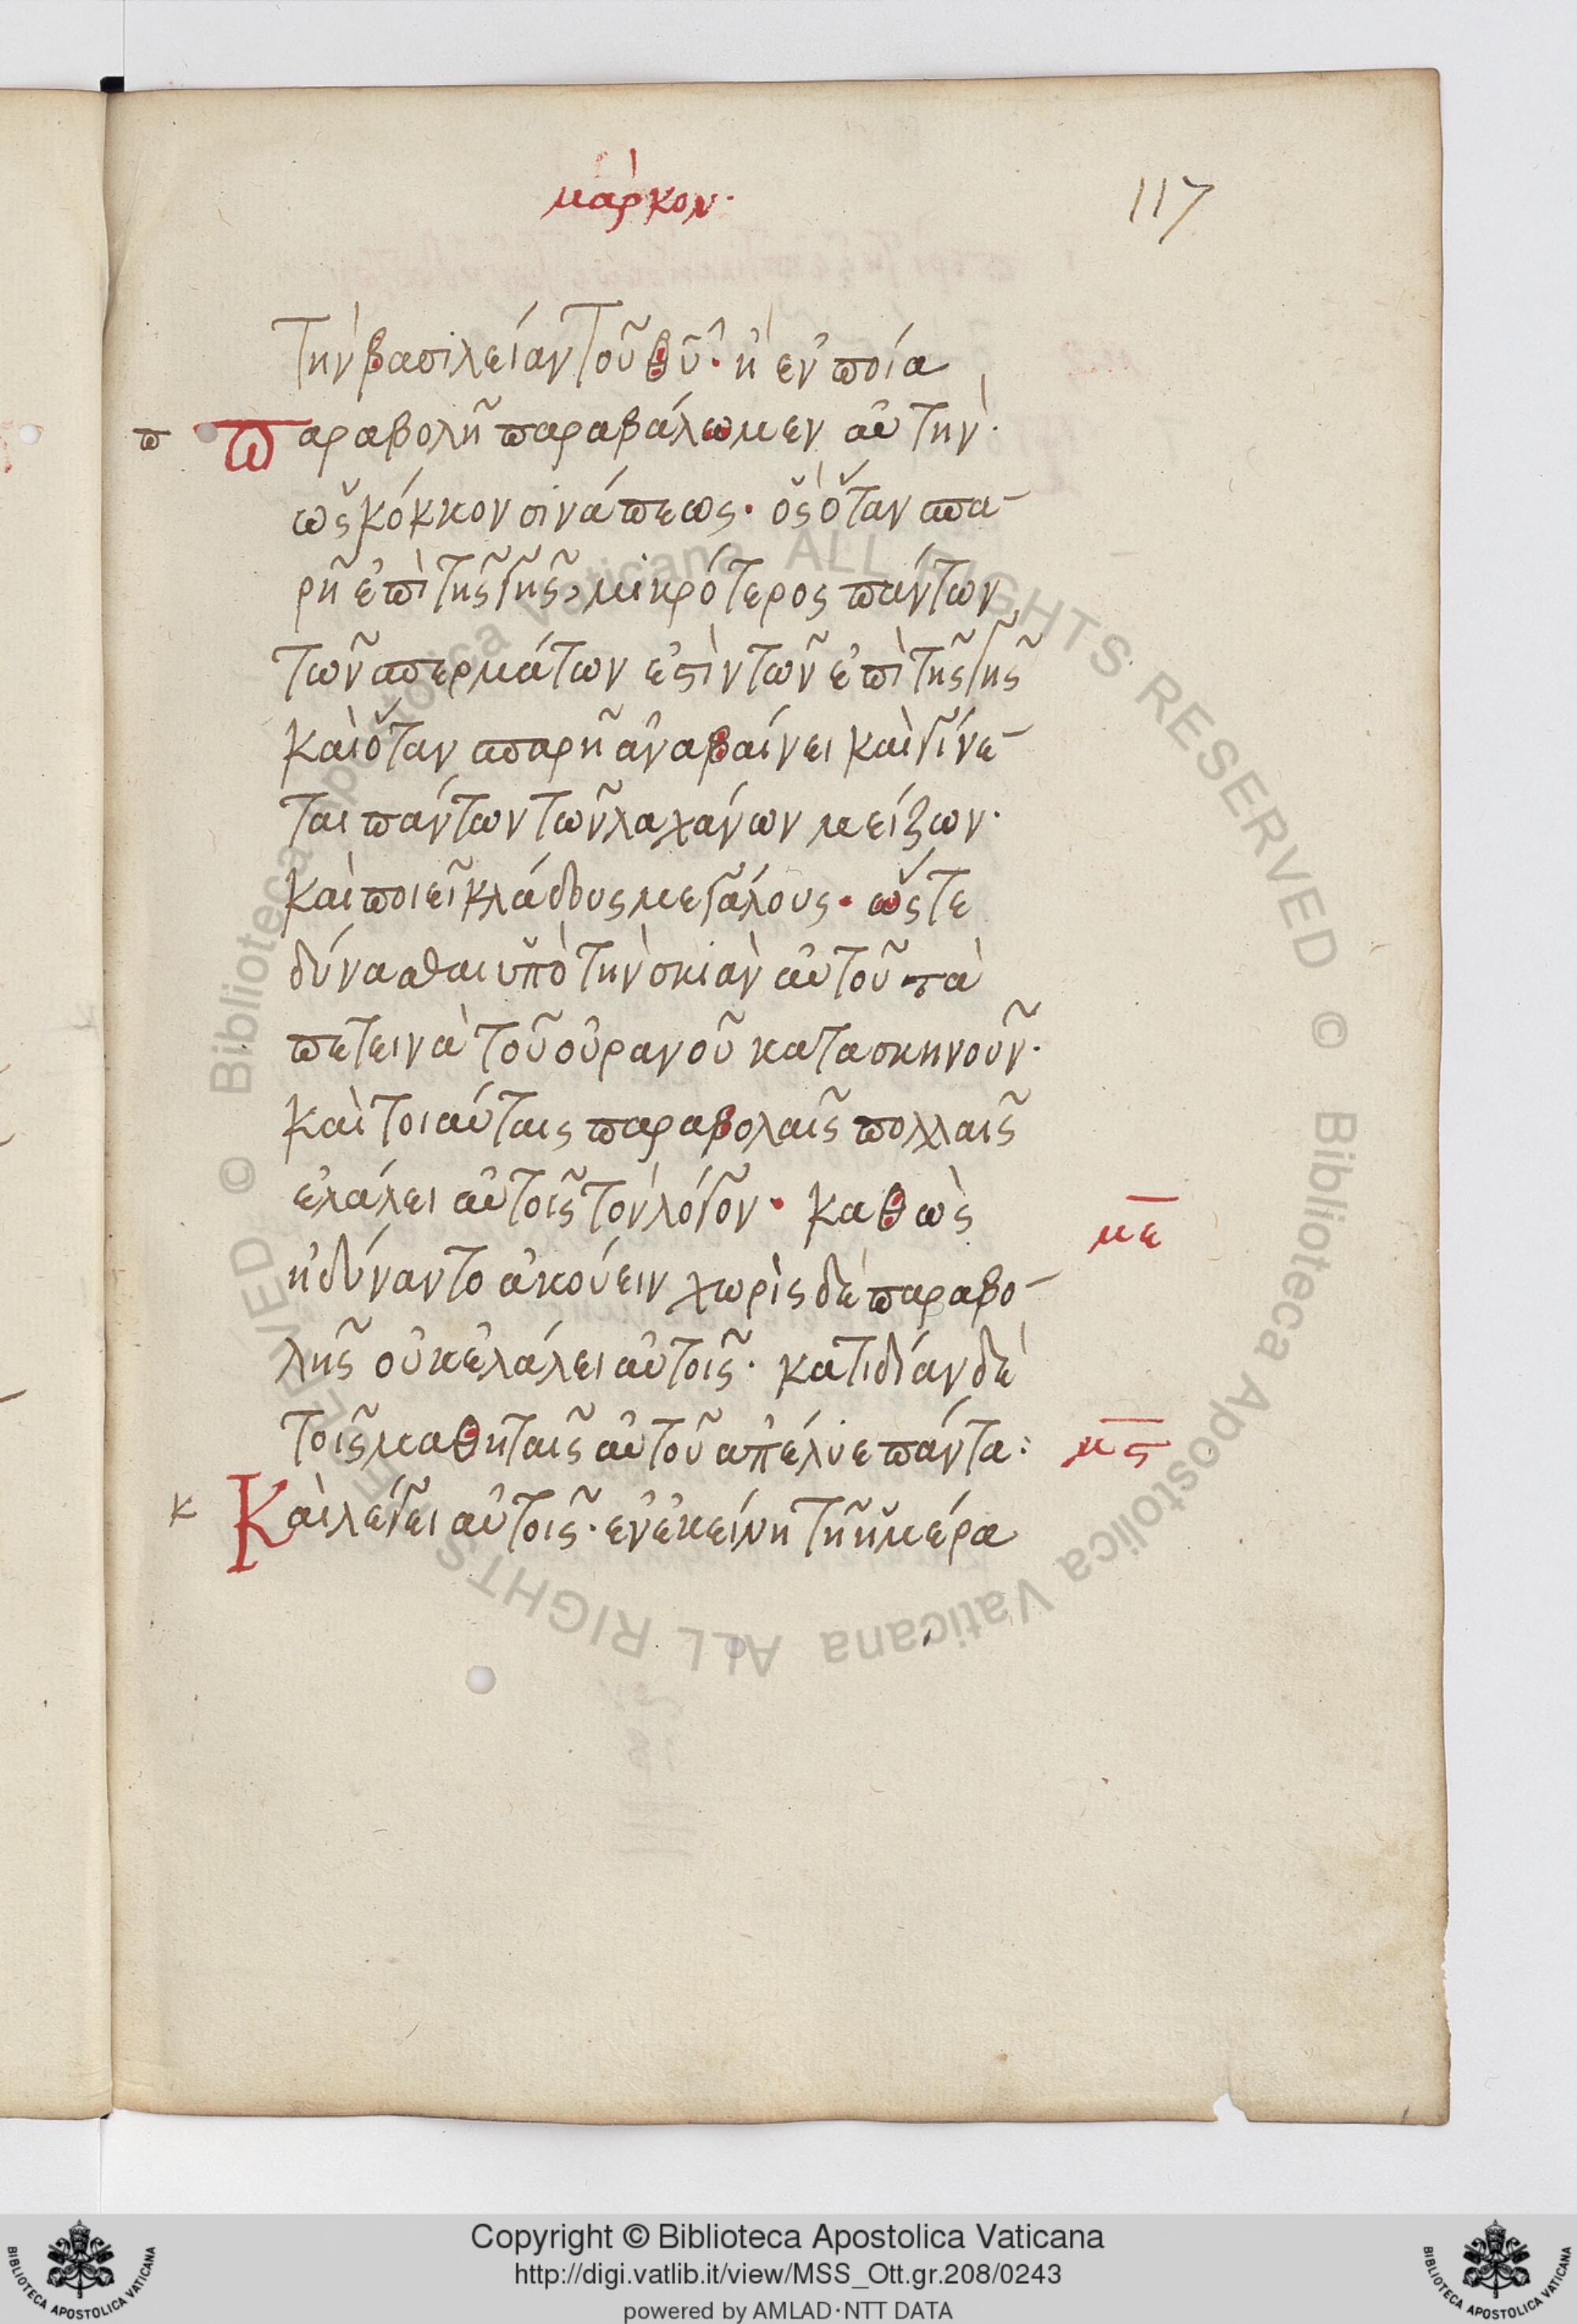 μάρκον·
117
τὴν βασιλείαν τοῦ θῦ· ἢ ἐν ποία
π
Παραβολῆ παραβάλωμεν αὐτήν·
ὡς κόκκον σινάπεως· ὃς ὅταν σπα-
ρῆ ἐπὶ τῆς γῆς, μικρότερος πάντων
τῶν σπερμάτων ἐστὶν τῶν ἐπὶ τῆς γῆς
καὶ ὅταν σπαρῆ ἀναβαίνει καὶ γίνε-
ται πάντων τῶν λαχάνων μείζων·
καὶ ποιεῖ κλάδους μεγάλους· ὥστε
δύνασθαι ὑπὸ τὴν σκιὰν αὐτοῦ τὰ
πετεινὰ τοῦ οὐρανοῦ κατασκηνοῦν·
καὶ τοιαύταις παραβολαῖς πολλαῖς
ἐλάλει αὐτοῖς τὸν λόγον· καθὼς
με
ἠδύναντο ἀκούειν χωρὶς δὲ παραβο-
λῆς οὐκ ἐλάλει αὐτοῖς· κατιδίαν δὲ
τοῖς μαθηταῖς αὐτοῦ ἀπέλυε πάντα:
μς
κ
Καὶ λέγει αὐτοῖς· ἐν ἐκείνη τῆ ἡμέρα
© Biblioteca Apostolica Vaticana ALL RIGHTS RESERVED © Biblioteca Apostolica Vaticana ALL RIGHTS RESERVED
BIBLIOTECA APOSTOLICA VATICANA
Copyright © Biblioteca Apostolica Vaticana
http://digi.vatlib.it/view/MSS_Ott.gr.208/0243
powered by AMLAD·NTT DATA
BIBLIOTECA APOSTOLICA VATICANA